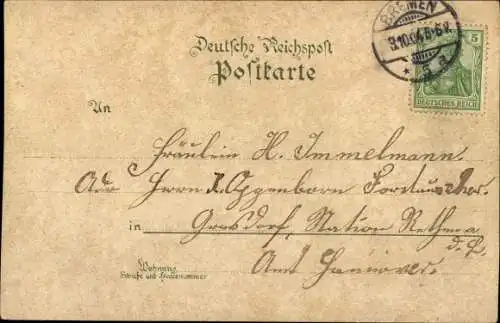 Deutsche Reichspost
Postkarte
BREMEN
3.10.04.5-6 V.
* 5 a
5
DEUTSCHES REICH
An
Fräulein H. Immelmann.
Adr. Herrn Oppenborn
in Grasdorf, Station Rethen a
d. L.
Amt Hannover.
Wohnung
Straße und Hausnummer